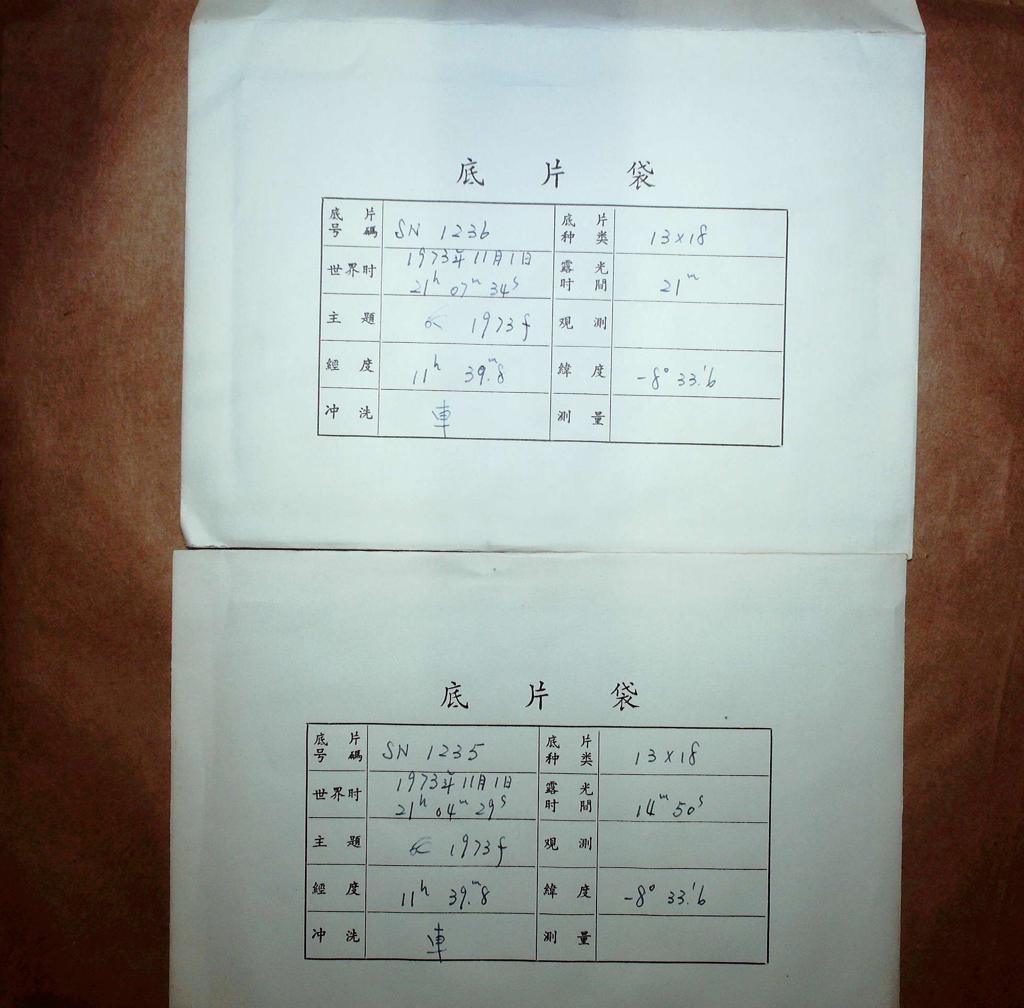 底片袋
底片号碼 SN 1236 底片种类 13×18
世界时 1973年11月1日 21ʰ 07ᵐ 34ˢ 露光时間 21ᵐ
主題 1973f 观測
經度 11ʰ 39ᵐ.8 緯度 -8° 33'.6
冲洗 車 測量
底片袋
底片号碼 SN 1235 底片种类 13×18
世界时 1973年11月1日 21ʰ 04ᵐ 29ˢ 露光时間 14ᵐ 50ˢ
主題 1973f 观測
經度 11ʰ 39ᵐ.8 緯度 -8° 33'.6
冲洗 車 測量